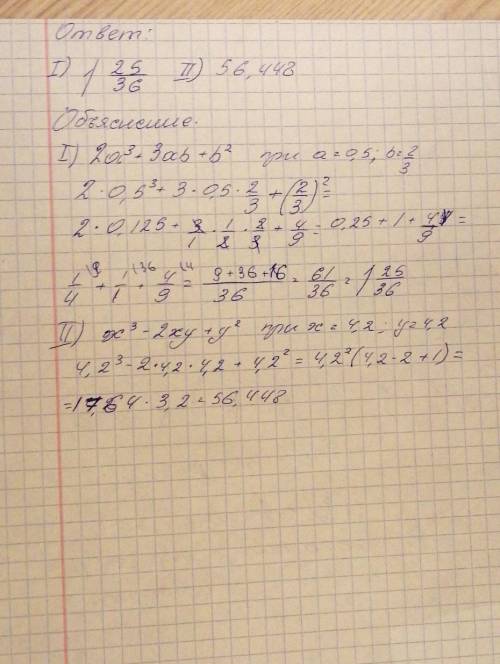 Ответ:
I) 1 25/36 II) 56,448
Объяснение.
I) 2a³ + 3ab + b² при a = 0,5; b = 2/3
2 · 0,5³ + 3 · 0,5 · 2/3 + (2/3)² =
2 · 0,125 + 3/1 · 1/2 · 2/3 + 4/9 = 0,25 + 1 + 4/9 =
1/4 \9 + 1/1 \36 + 4/9 \4 = 9 + 36 + 16/36 = 61/36 = 1 25/36
II) x³ - 2xy + y² при x = 4,2; y = 4,2
4,2³ - 2 · 4,2 · 4,2 + 4,2² = 4,2² (4,2 - 2 + 1) =
= 17,64 · 3,2 = 56,448